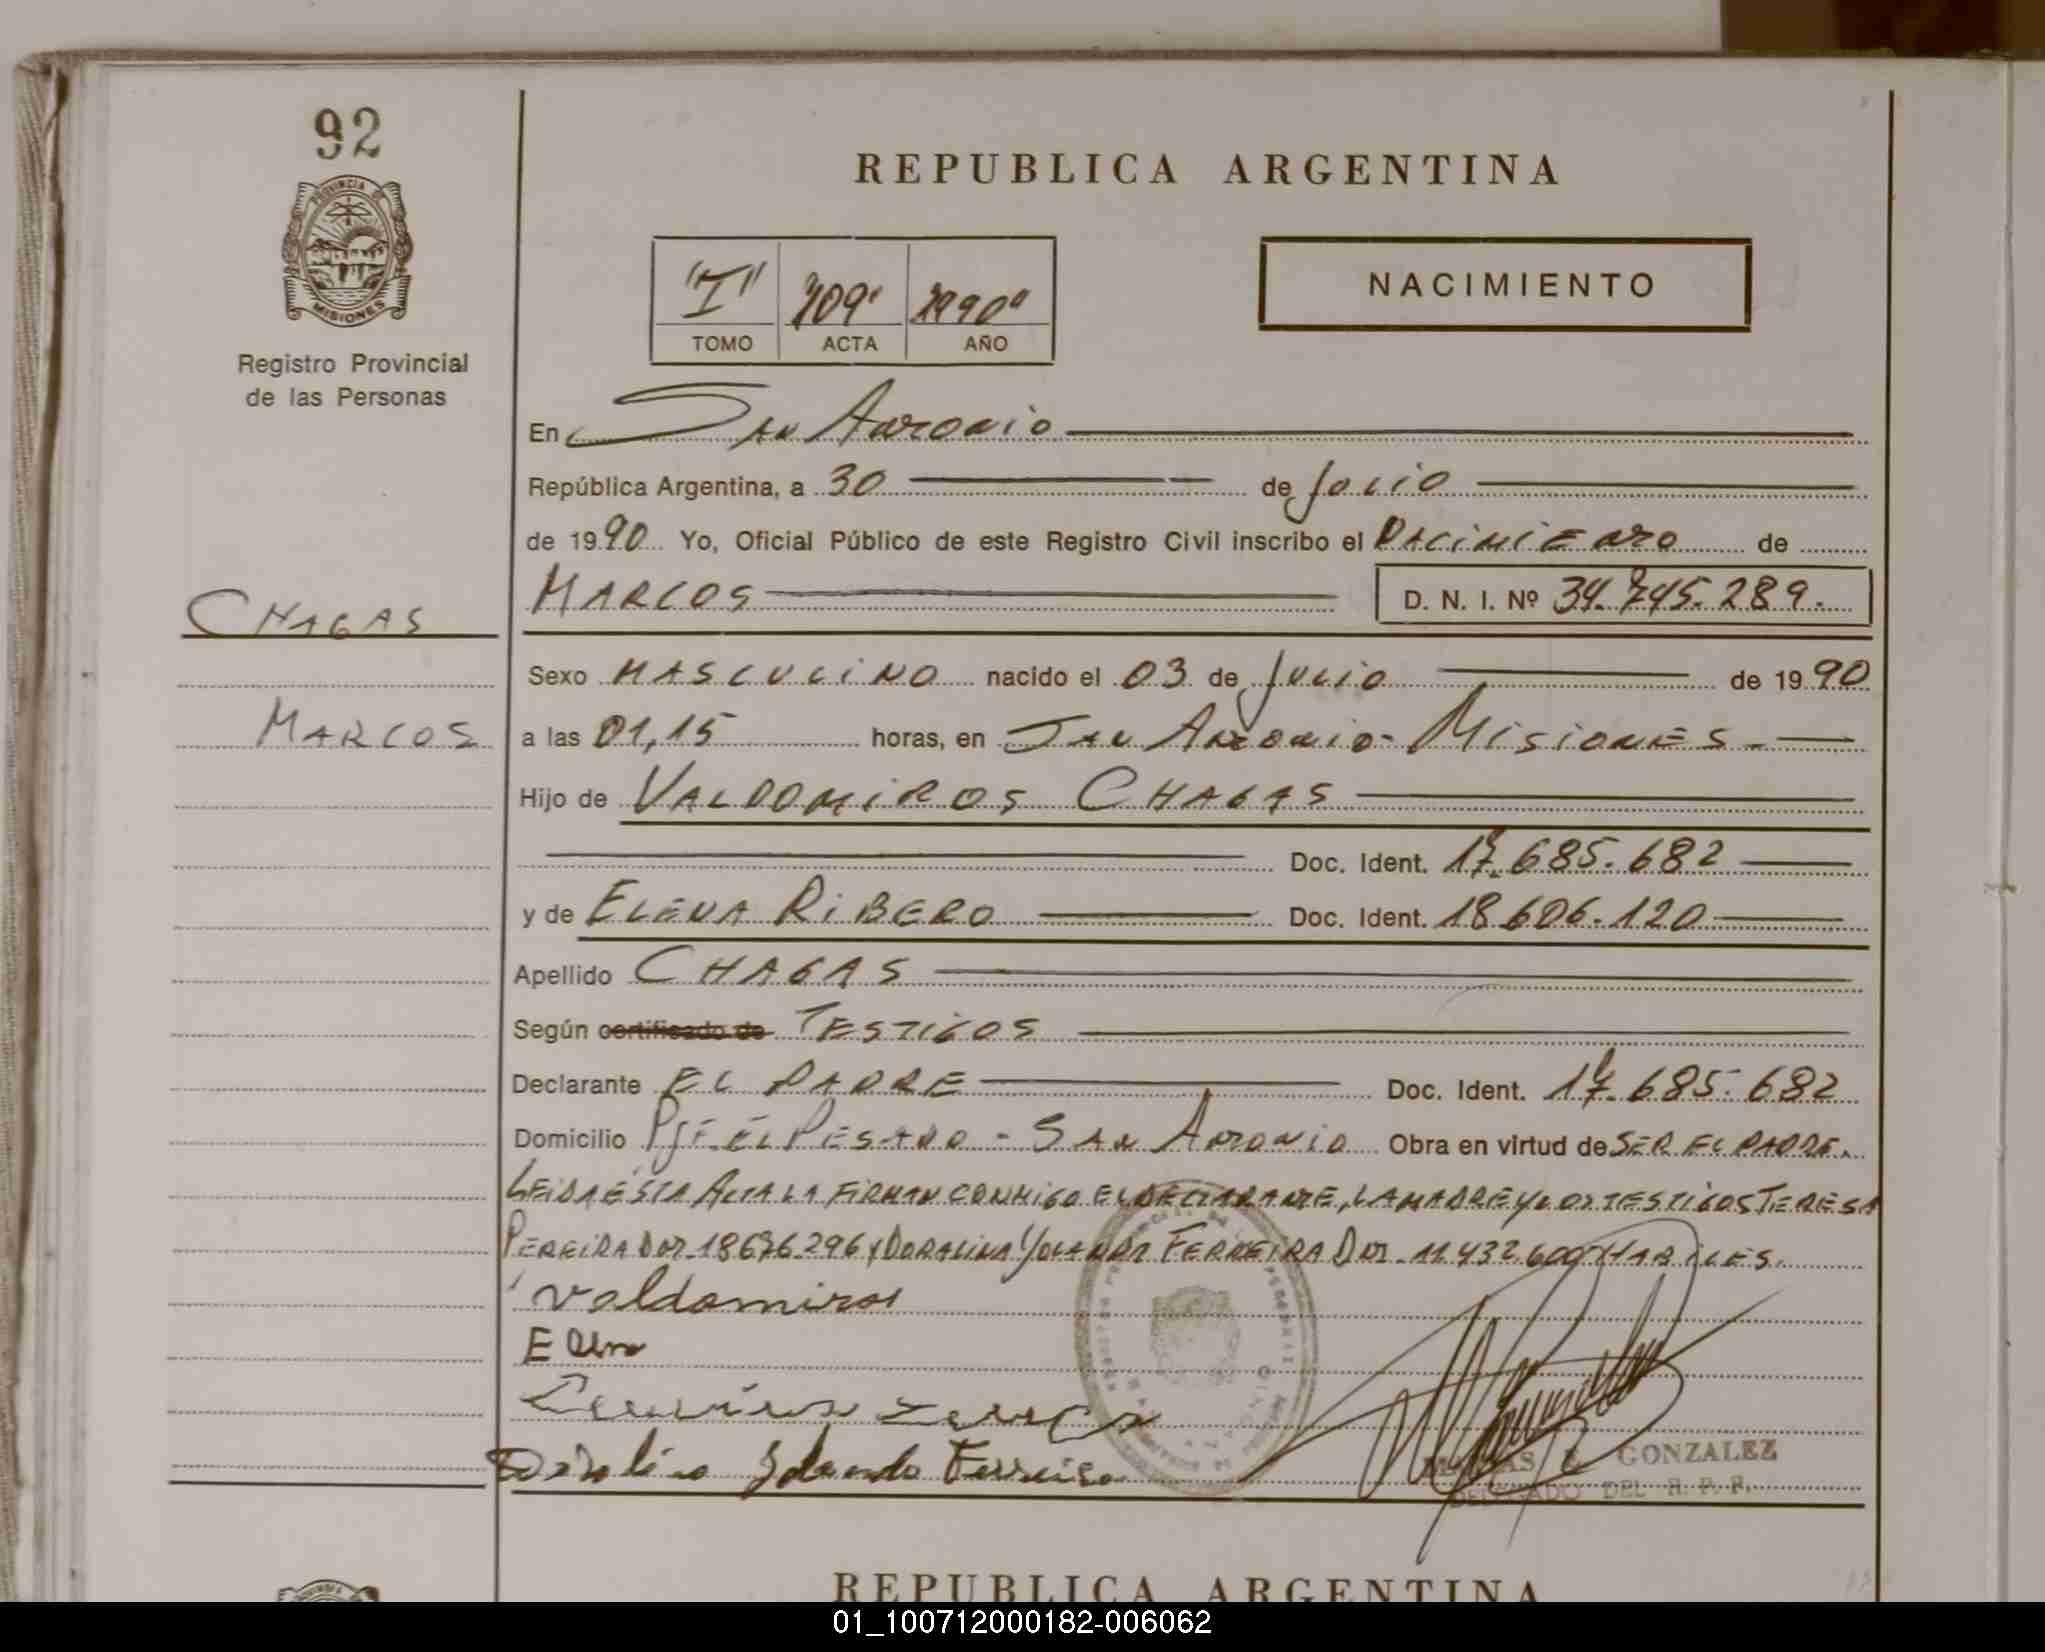 92
PROVINCIA DE
MISIONES
Registro Provincial
de las Personas
CHAGAS
MARCOS
REPUBLICA ARGENTINA
"I" 109' 1990"
TOMO ACTA AÑO
NACIMIENTO
En San Antonio
República Argentina, a 30 de Julio
de 1990 Yo, Oficial Público de este Registro Civil inscribo el Nacimiento de
MARCOS D. N. I. Nº 34.745.289.
Sexo MASCULINO nacido el 03 de Julio de 1990
a las 01,15 horas, en San Antonio - Misiones -
Hijo de VALDOMIROS CHAGAS
Doc. Ident. 17.685.682
y de ELENA RIBERO Doc. Ident. 18.606.120
Apellido CHAGAS
Según certificado de TESTIGOS
Declarante EL PADRE Doc. Ident. 17.685.682
Domicilio PJE EL PESADO - SAN ANTONIO Obra en virtud de SER EL PADRE.
LEIDA ESTA ACTA LA FIRMAN CONMIGO EL DECLARANTE, LA MADRE Y LOS TESTIGOS TERESA
PEREIRA DNI. 18676296 Y DORALINA YOLANDA FERREIRA DNI. 11.432.600 HABILES.
Valdomiros
Elena
Doralina Yolanda Ferreira
GONZALEZ
DELEGADO DEL R. P. P.
REPUBLICA ARGENTINA
01_100712000182-006062